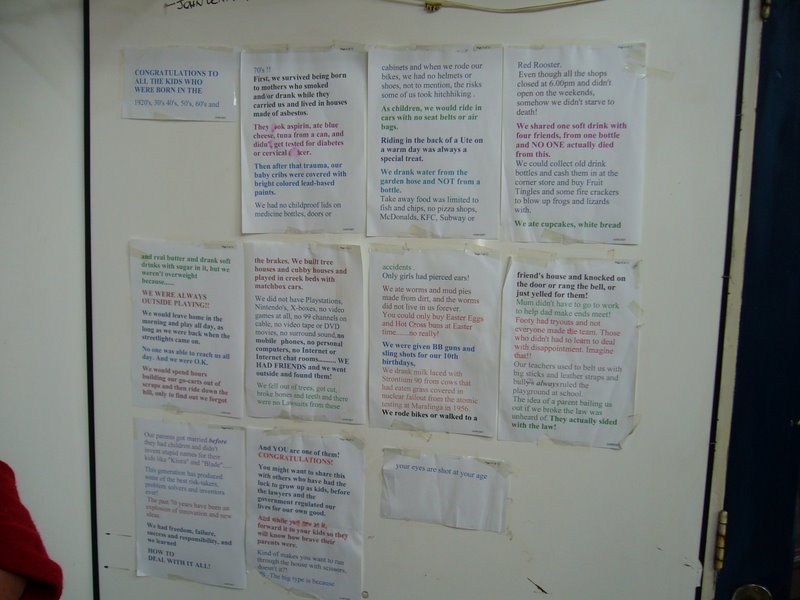 JOHN
CONGRATULATIONS TO
ALL THE KIDS WHO
WERE BORN IN THE
1920's, 30's 40's, 50's, 60's and
70's !!
First, we survived being born
to mothers who smoked
and/or drank while they
carried us and lived in houses
made of asbestos.
They took aspirin, ate blue
cheese, tuna from a can, and
didn't get tested for diabetes
or cervical cancer.
Then after that trauma, our
baby cribs were covered with
bright colored lead-based
paints.
We had no childproof lids on
medicine bottles, doors or
cabinets and when we rode our
bikes, we had no helmets or
shoes, not to mention, the risks
some of us took hitchhiking .
As children, we would ride in
cars with no seat belts or air
bags.
Riding in the back of a Ute on
a warm day was always a
special treat.
We drank water from the
garden hose and NOT from a
bottle.
Take away food was limited to
fish and chips, no pizza shops,
McDonalds, KFC, Subway or
Red Rooster.
Even though all the shops
closed at 6.00pm and didn't
open on the weekends,
somehow we didn't starve to
death!
We shared one soft drink with
four friends, from one bottle
and NO ONE actually died
from this.
We could collect old drink
bottles and cash them in at the
corner store and buy Fruit
Tingles and some fire crackers
to blow up frogs and lizards
with.
We ate cupcakes, white bread
and real butter and drank soft
drinks with sugar in it, but we
weren't overweight
because......
WE WERE ALWAYS
OUTSIDE PLAYING!!
We would leave home in the
morning and play all day, as
long as we were back when the
streetlights came on.
No one was able to reach us all
day. And we were O.K.
We would spend hours
building our go-carts out of
scraps and then ride down the
hill, only to find out we forgot
the brakes. We built tree
houses and cubby houses and
played in creek beds with
matchbox cars.
We did not have Playstations,
Nintendo's, X-boxes, no video
games at all, no 99 channels on
cable, no video tape or DVD
movies, no surround sound, no
mobile phones, no personal
computers, no Internet or
Internet chat rooms.......... WE
HAD FRIENDS and we went
outside and found them!
We fell out of trees, got cut,
broke bones and teeth and there
were no Lawsuits from these
accidents .
Only girls had pierced ears!
We ate worms and mud pies
made from dirt, and the worms
did not live in us forever.
You could only buy Easter Eggs
and Hot Cross buns at Easter
time.......no really!
We were given BB guns and
sling shots for our 10th
birthdays,
We drank milk laced with
Strontium 90 from cows that
had eaten grass covered in
nuclear fallout from the atomic
testing at Maralinga in 1956.
We rode bikes or walked to a
friend's house and knocked on
the door or rang the bell, or
just yelled for them!
Mum didn't have to go to work
to help dad make ends meet!
Footy had tryouts and not
everyone made the team. Those
who didn't had to learn to deal
with disappointment. Imagine
that!!
Our teachers used to belt us with
big sticks and leather straps and
always ruled the
playground at school.
The idea of a parent bailing us
out if we broke the law was
unheard of. They actually sided
with the law!
Our parents got married before
they had children and didn't
invent stupid names for their
kids like "Kiora" and "Blade".....
This generation has produced
some of the best risk-takers,
problem solvers and inventors
ever!
The past 70 years have been an
explosion of innovation and new
ideas.
We had freedom, failure,
success and responsibility, and
we learned
HOW TO
DEAL WITH IT ALL!
And YOU are one of them!
CONGRATULATIONS!
You might want to share this
with others who have had the
luck to grow up as kids, before
the lawyers and the
government regulated our
lives for our own good.
And while you are at it,
forward it to your kids so they
will know how brave their
parents were.
Kind of makes you want to run
through the house with scissors,
doesn't it?!
The big type is because
your eyes are shot at your age